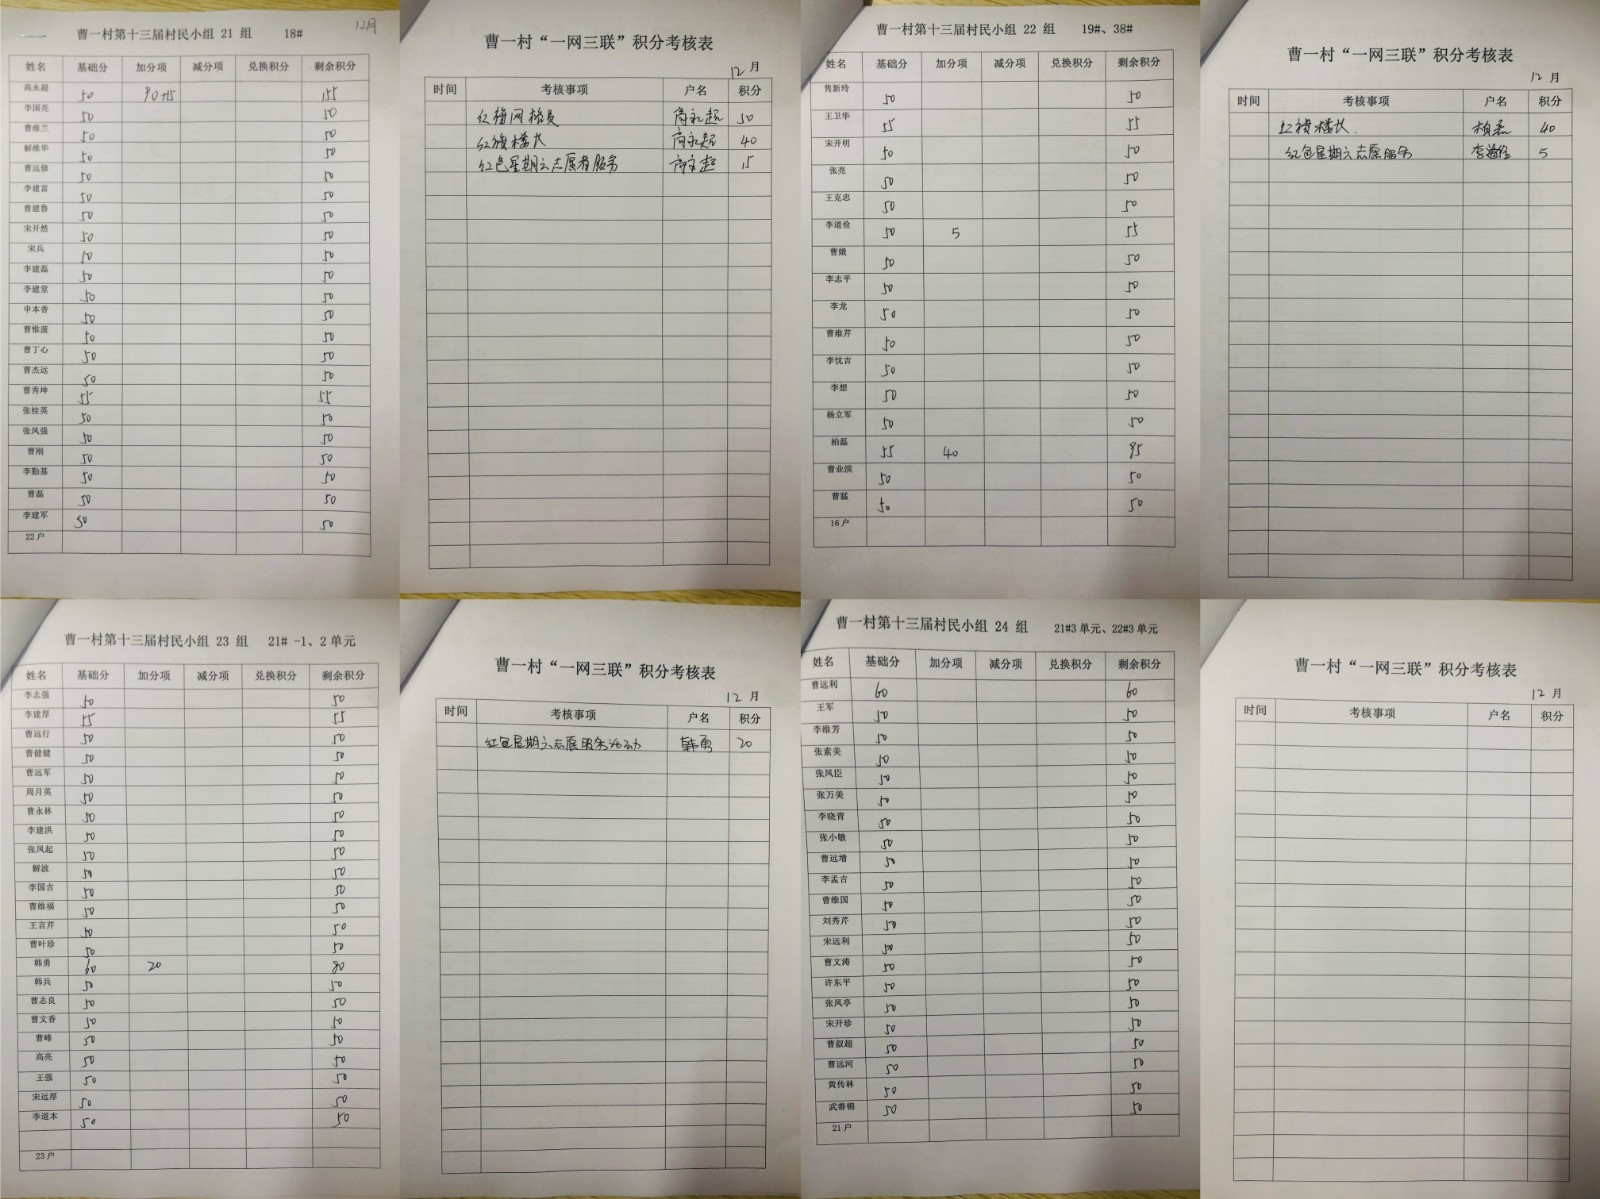 曹一村第十三届村民小组 21 组 18# 12月
姓名 基础分 加分项 减分项 兑换积分 剩余积分
高永超 50 90+15 155
李国亮 50 50
曹维兰 50 50
解维华 50 50
曹远修 50 50
李建富 50 50
曹建鲁 50 50
宋开然 50 50
宋兵 50 50
李建磊 50 50
李建堂 50 50
申本香 50 50
曹维菠 50 50
曹丁心 50 50
曹杰远 50 50
曹秀坤 55 55
张桂英 50 50
张凤强 50 50
曹刚 50 50
李勤基 50 50
曹磊 50 50
李建军 50 50
22户
曹一村“一网三联”积分考核表
12月
时间 考核事项 户名 积分
红旗网格员 高永超 50
红旗楼长 高永超 40
红色星期六志愿者服务 高永超 15
曹一村第十三届村民小组 22 组 19#、38#
姓名 基础分 加分项 减分项 兑换积分 剩余积分
男新玲 50 50
王卫华 55 55
宋开明 50 50
张亮 50 50
王克忠 50 50
李道俭 50 5 55
曹娥 50 50
李志平 50 50
李龙 50 50
曹维芹 50 50
李忱吉 50 50
李想 50 50
杨立军 50 50
柏磊 55 40 95
曹业滨 50 50
曹猛 50 50
16户
曹一村“一网三联”积分考核表
12月
时间 考核事项 户名 积分
红旗楼长. 柏磊 40
红色星期六志愿服务 李道俭 5
曹一村第十三届村民小组 23 组 21# -1、2单元
姓名 基础分 加分项 减分项 兑换积分 剩余积分
李志强 50 50
李建厚 55 55
曹远行 50 50
曹健健 50 50
曹远军 50 50
周月英 50 50
曹永林 50 50
李建洪 50 50
张凤起 50 50
解波 50 50
李国吉 50 50
曹维福 50 50
王言芹 50 50
曹叶珍 50 50
韩勇 60 20 80
韩兵 50 50
曹志良 50 50
曹文香 50 50
曹峰 50 50
高亮 50 50
王强 50 50
宋远厚 50 50
李道本 50 50
23户
曹一村“一网三联”积分考核表
12月
时间 考核事项 户名 积分
红色星期六志愿服务活动 韩勇 20
曹一村第十三届村民小组 24 组 21#3单元、22#3单元
姓名 基础分 加分项 减分项 兑换积分 剩余积分
曹远利 60 60
王军 50 50
李维芳 50 50
张素美 50 50
张凤臣 50 50
张万美 50 50
李晓青 50 50
张小敏 50 50
曹远增 50 50
李孟吉 50 50
曹维国 50 50
刘秀芹 50 50
宋远利 50 50
曹文涛 50 50
许东平 50 50
张凤亭 50 50
宋开珍 50 50
曹叙超 50 50
曹远河 50 50
黄传林 50 50
武善锡 50 50
21户
曹一村“一网三联”积分考核表
12月
时间 考核事项 户名 积分